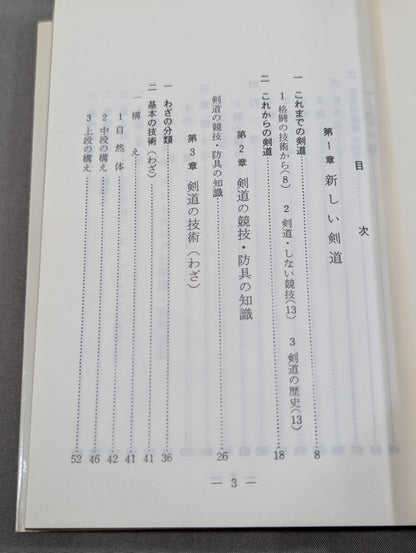 目次
第1章 新しい剣道
一 これまでの剣道……8
1 格闘の技術から(8) 2 剣道・しない競技(13) 3 剣道の歴史(13)
二 これからの剣道……18
第2章 剣道の競技・防具の知識
剣道の競技・防具の知識……26
第3章 剣道の技術(わざ)
一 わざの分類……36
二 基本の技術(わざ)……41
一 構え……41
1 自然体……42
2 中段の構え……46
3 上段の構え……52
— 3 —